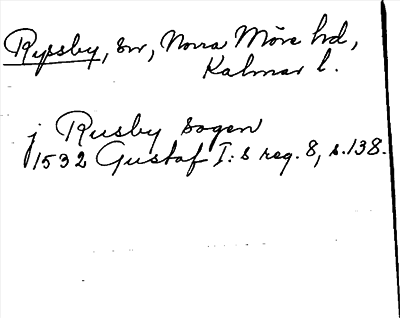 Ryssby, sn, Norra Möre hd,
Kalmar l.
j Rusby sogen
1532 Gustaf I:s reg. 8, s.138.